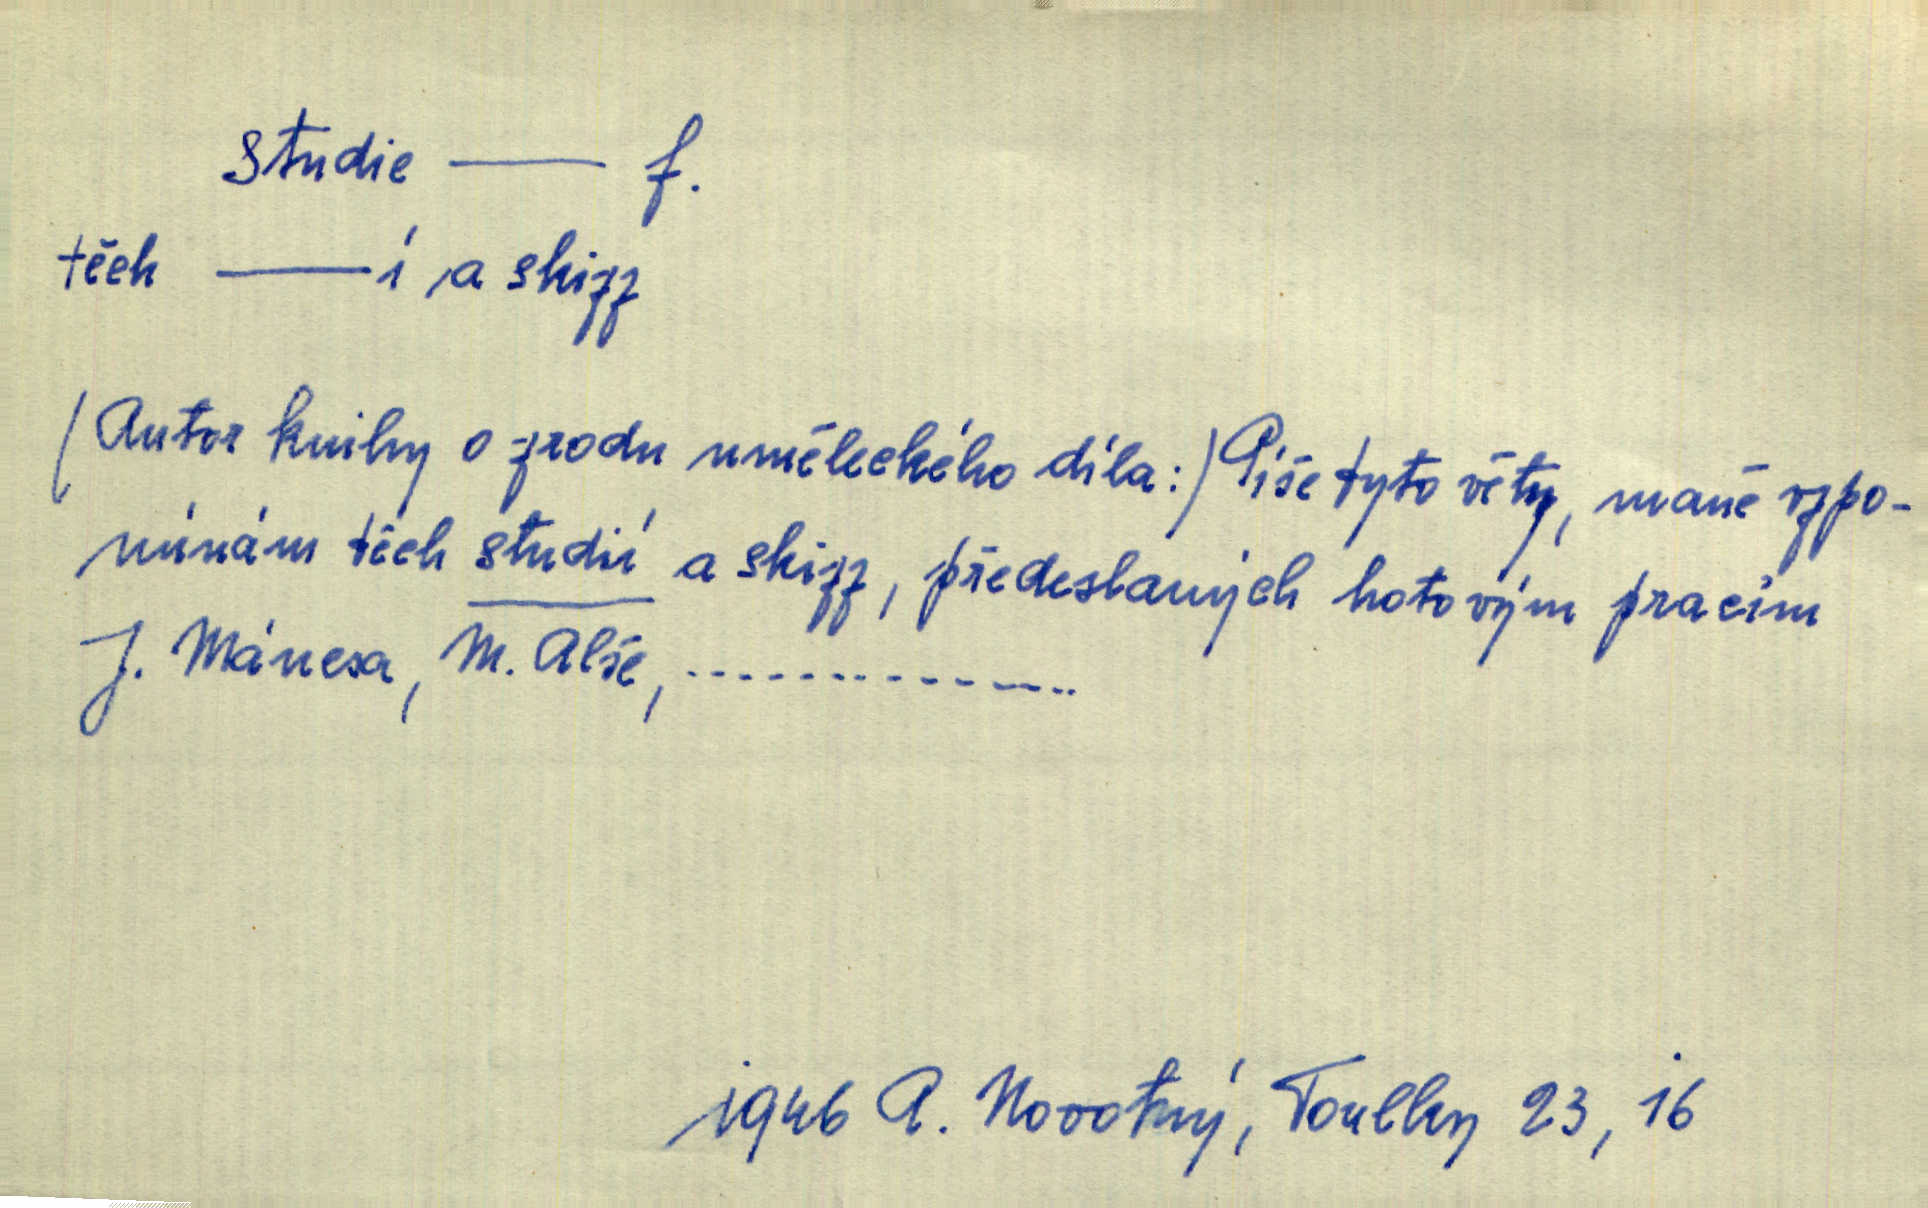 Studie —— f.
těch ——í a skizz
(Autor knihy o zrodu uměleckého díla:) Píše tyto věty, maně vzpo-
mínám těch studií a skizz, předeslaných hotovým pracím
J. Mánesa, M. Alše, ................
1946 A. Novotný, Toulky 23, 16